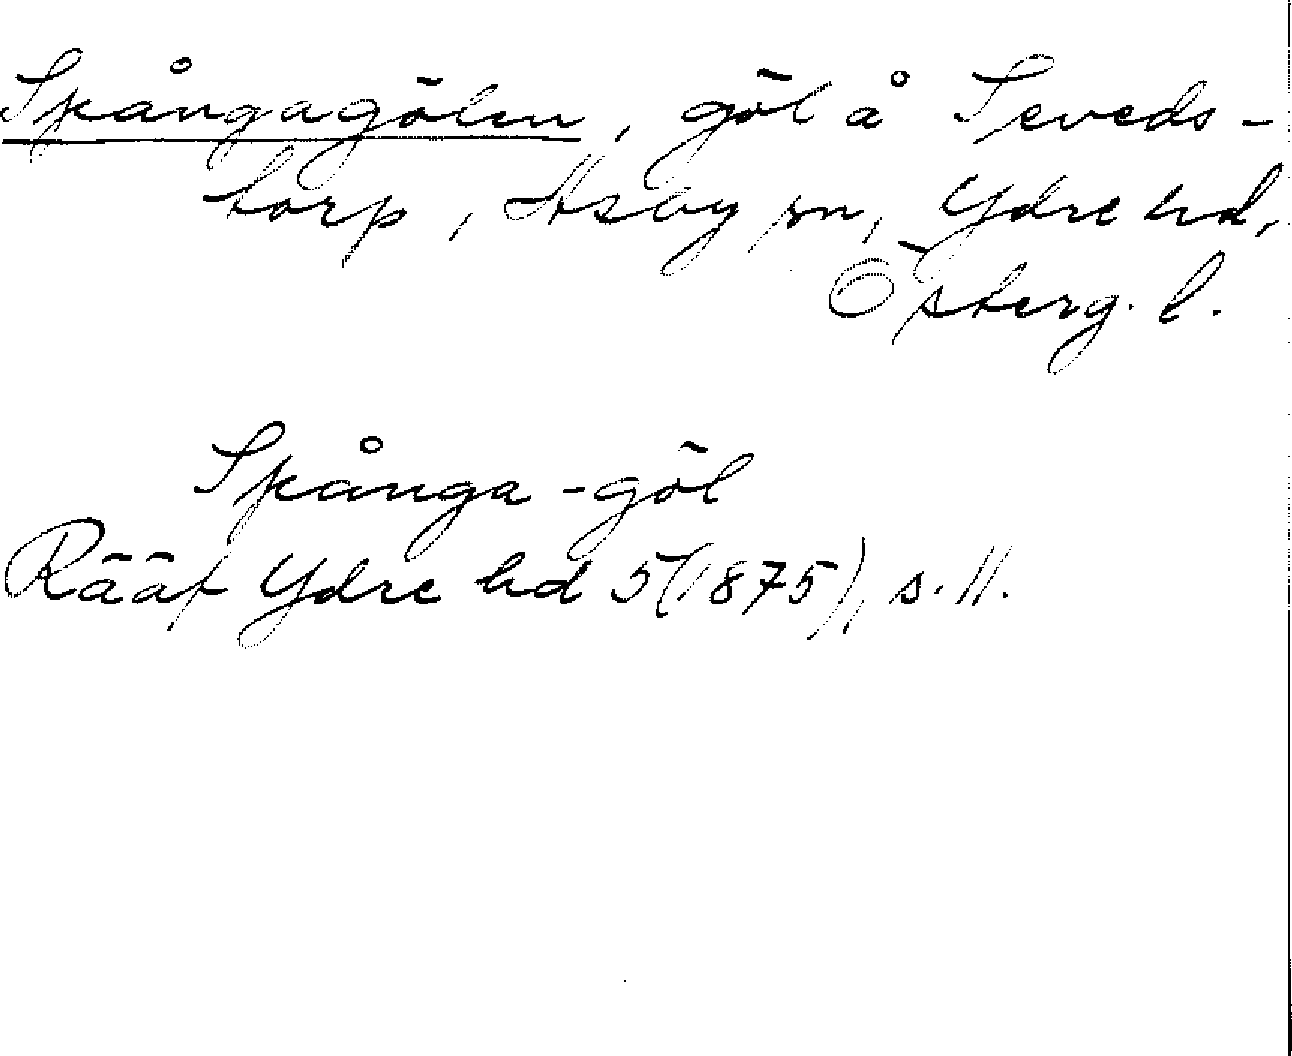 Spångagölen, göl å Seveds-
torp, Asby sn, Ydre hd,
Österg. l.
Spånga-göl
Rääf Ydre hd 5(1875), s. 11.